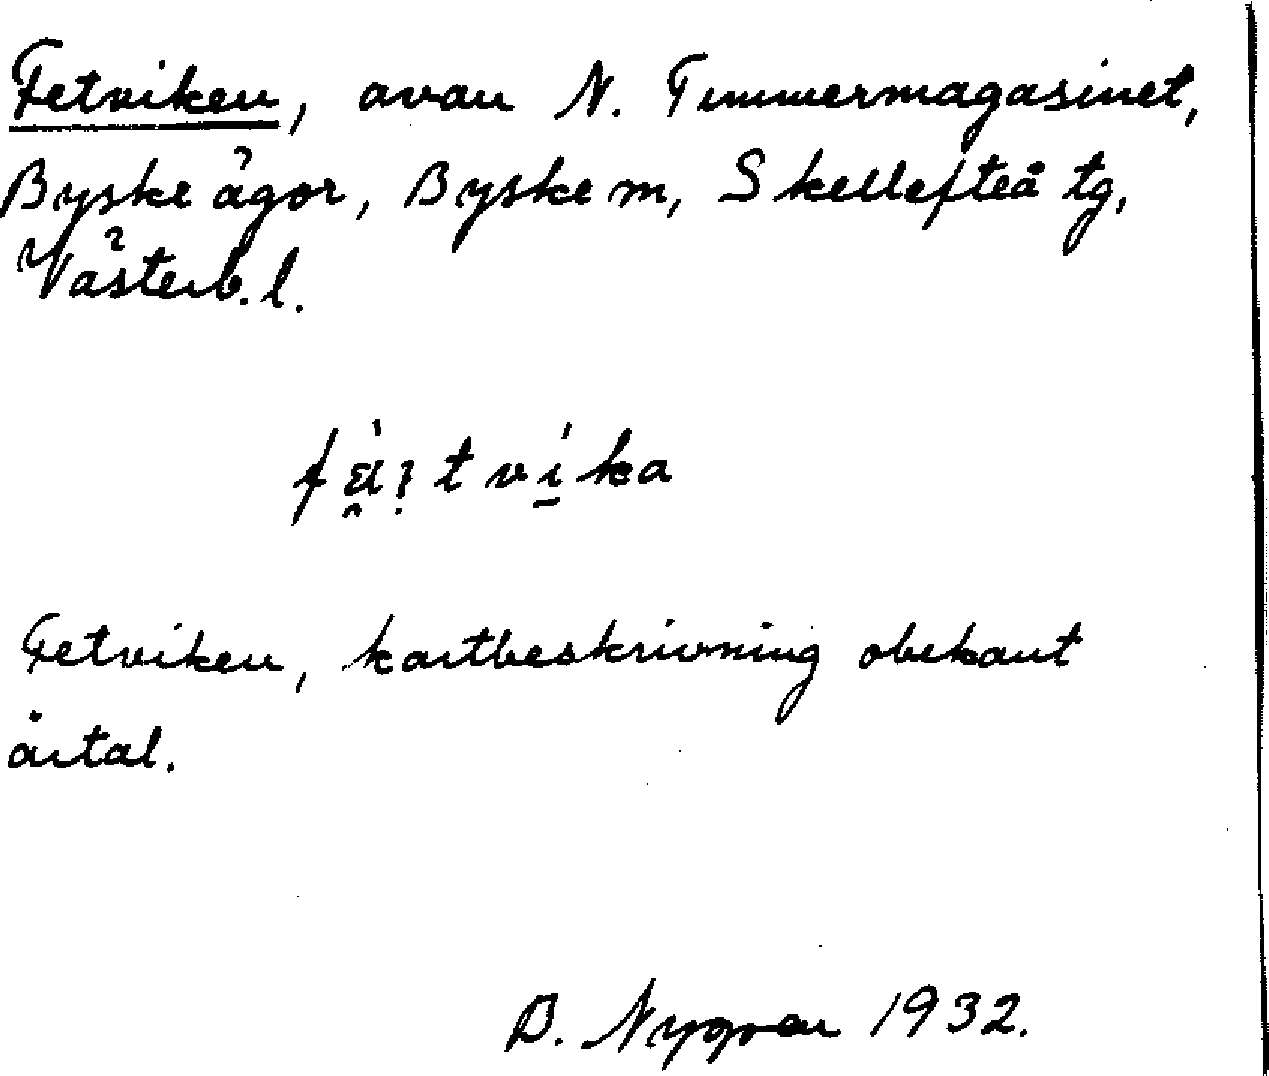 Fetviken, avan N. Timmermagasinet,
Byske ägor, Byske m, Skellefteå tg,
Västerb. l.
Fetviken, kartbeskrivning obekant
årtal.
B. Nygren 1932.